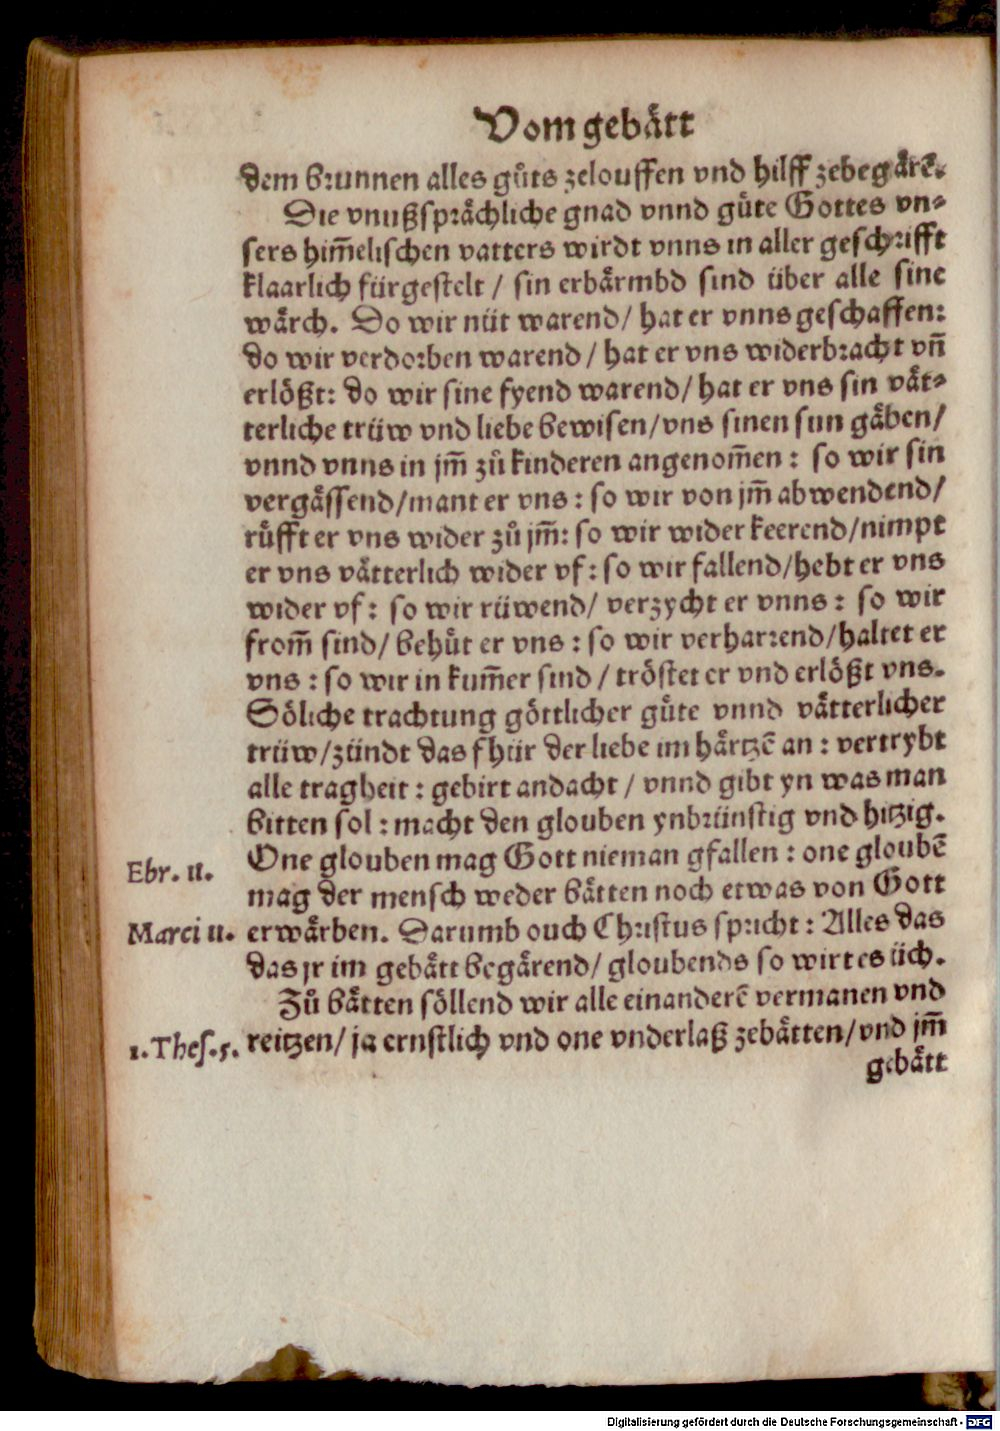 Vom gebaͤtt
dem brunnen alles guͦts zelouffen vnd hilff zebegaͤrē.
Die vnußspraͤchliche gnad vnnd guͤte Gottes vn⸗
sers him̄elischen vatters wirdt vnns in aller geschrifft
klaarlich fürgestelt / sin erbaͤrmbd sind über alle sine
waͤrch. Do wir nüt warend / hat er vnns geschaffen:
do wir verdorben warend / hat er vns widerbracht vn̄
erloͤßt: do wir sine fyend warend / hat er vns sin vaͤt⸗
terliche trüw vnd liebe bewisen / vns sinen sun gaͤben /
vnnd vnns in jm̄ zuͦ kinderen angenom̄en : so wir sin
vergaͤssend / mant er vns : so wir von jm̄ abwendend /
ruͤfft er vns wider zuͦ jm̄: so wir wider keerend / nimpt
er vns vaͤtterlich wider vf : so wir fallend / hebt er vns
wider vf : so wir rüwend / verzycht er vnns : so wir
from̄ sind / behuͤt er vns : so wir verharrend / haltet er
vns : so wir in kum̄er sind / troͤstet er vnd erloͤßt vns.
Soͤliche trachtung goͤttlicher guͤte vnnd vaͤtterlicher
trüw / zündt das fhür der liebe im haͤrtzē an : vertrybt
alle tragheit : gebirt andacht / vnnd gibt yn was man
bitten sol : macht den glouben ynbrünstig vnd hitzig.
Ebr. 11. One glouben mag Gott nieman gfallen : one gloubē
mag der mensch weder baͤtten noch etwas von Gott
Marci 11. erwaͤrben. Darumb ouch Christus spricht : Alles das
das jr im gebaͤtt begaͤrend / gloubends so wirt es üch.
Zuͦ baͤtten soͤllend wir alle einanderē vermanen vnd
1. Thes. 5. reitzen / ja ernstlich vnd one vnderlaß zebaͤtten / vnd jm̄
gebaͤtt
Digitalisierung gefördert durch die Deutsche Forschungsgemeinschaft - DFG